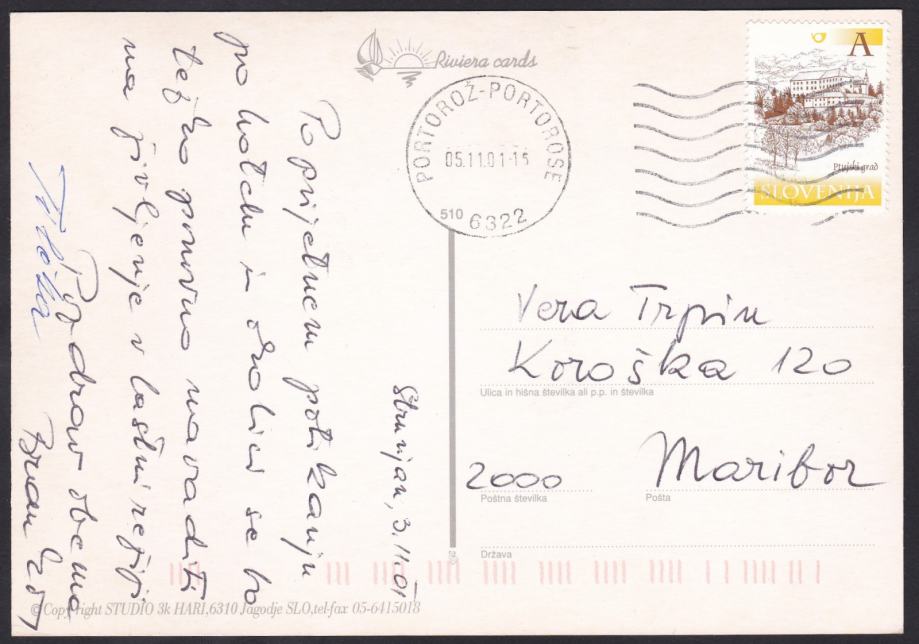 Riviera cards
A
Ptujski grad
SLOVENIJA
PORTOROŽ-PORTOROSE
05.11.01-15
6322
510
Strunjan, 3.11.01
Po prijetnem potikanju
po hotelu in okolici se bo
težko ponovno navaditi
na življenje v lastni režiji
Pozdrav obema
Vera Trpin
Koroška 120
Ulica in hišna številka ali p.p. in številka
2000 Maribor
Poštna številka Pošta
Država
© Copyright STUDIO 3k HARI,6310 Jagodje SLO,tel-fax 05-6415018